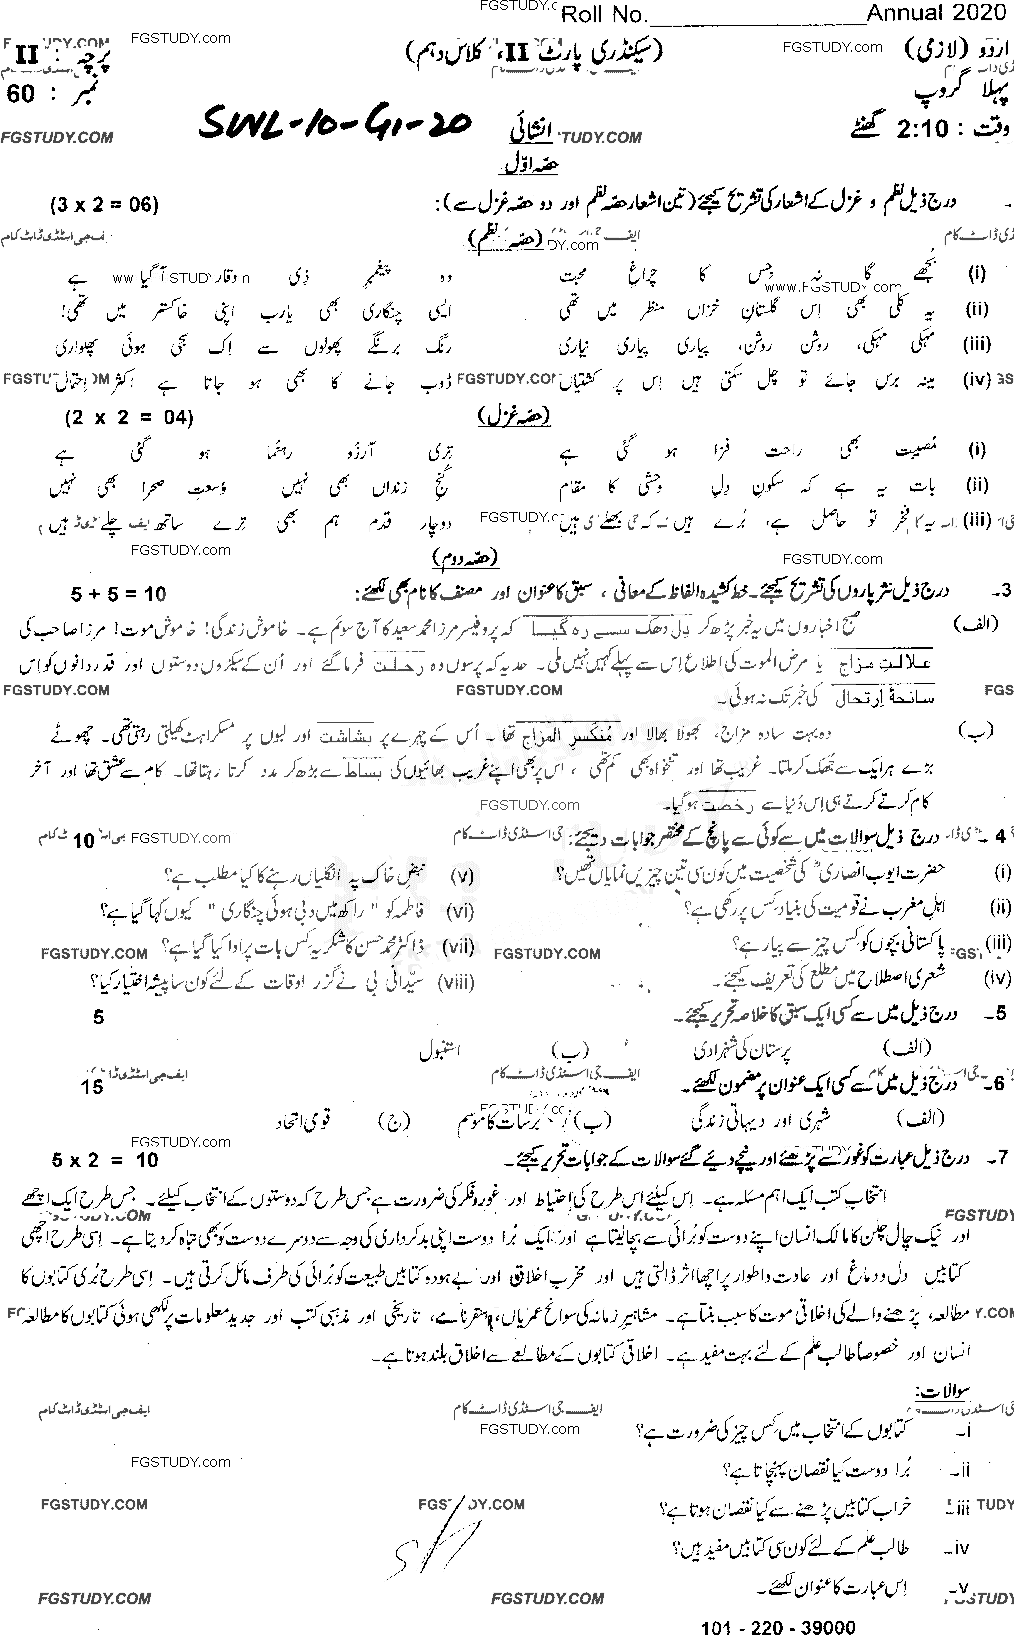 Roll No.________________ Annual 2020
اردو (لازمی) (سیکنڈری پارٹ II، کلاس دہم) پرچہ : II
پہلا گروپ نمبر : 60
وقت : 2:10 گھنٹے انشائی SWL-10-G1-20
حصّہ اوّل
درج ذیل نظم و غزل کے اشعار کی تشریح کیجئے (تین اشعار حصّہ نظم اور دو حصّہ غزل سے): (3 x 2 = 06)
(حصّہ نظم)
(i) بجھے گا نہ جس کا چراغِ محبت وہ پیغمبرِ ذی وقار آ گیا ہے
(ii) یہ کلی بھی اس گلستانِ خزاں منظر میں تھی ایسی چنگاری بھی یارب اپنی خاکستر میں تھی!
(iii) مہکی مہکی، روشن روشن، پیاری پیاری نیاری رنگ برنگے پھولوں سے اک سجی ہوئی پھلواری
(iv) مینہ برس جائے تو چل سکتی ہیں اس پر کشتیاں ڈوب جانے کا بھی ہو جاتا ہے اکثر احتمال
(حصّہ غزل) (2 x 2 = 04)
(i) مُصیبت بھی راحت فزا ہو گئی ہے تری آرزُو رہنُما ہو گئی ہے
(ii) بات یہ ہے کہ سکونِ دلِ وحشی کا مقام کُنجِ زنداں بھی نہیں وُسعتِ صحرا بھی نہیں
(iii) یہ فخر تو حاصل ہے، بُرے ہیں کہ بھلے ہیں دوچار قدم ہم بھی ترے ساتھ چلے ہیں
(حصّہ دوم)
3۔ درج ذیل نثر پاروں کی تشریح کیجئے۔ خط کشیدہ الفاظ کے معانی ، سبق کا عنوان اور مصنف کا نام بھی لکھئے: 5 + 5 = 10
(الف) صبح اخباروں میں یہ خبر پڑھ کر دِل دھک سے رہ گیا کہ پروفیسر مرزا محمد سعید کا آج سوئم ہے۔ خاموش زندگی! خاموش موت! مرزا صاحب کی
علالتِ مزاج یا مرض الموت کی اطلاع اس سے پہلے کہیں نہیں ملی۔ حد یہ کہ پرسوں وہ رحلت فرما گئے اور اُن کے سیکڑوں دوستوں اور قدر دانوں کو اس
سانحۂ اِرتحال کی خبر تک نہ ہوئی۔
(ب) وہ بہت سادہ مزاج، بھولا بھالا اور مُنکسر المزاج تھا ۔ اُس کے چہرے پر بشاشت اور لبوں پر مسکراہٹ کھیلتی رہتی تھی۔ چھوٹے
بڑے ہر ایک سے جُھک کر ملتا۔ غریب تھا اور تنخواہ بھی کم تھی ، اس پر بھی اپنے غریب بھائیوں کی بساط سے بڑھ کر مدد کرتا رہتا تھا۔ کام سے عشق تھا اور آخر
کام کرتے کرتے ہی اس دُنیا سے رخصت ہو گیا۔
4۔ درج ذیل سوالات میں سے کوئی سے پانچ کے مختصر جوابات دیجئے: 10
(i) حضرت ایوب انصاریؓ کی شخصیت میں کون سی تین چیزیں نمایاں تھیں؟ (v) نبضِ خاک پہ انگلیاں رہنے کا کیا مطلب ہے؟
(ii) اہلِ مغرب نے قومیت کی بنیاد کس پر رکھی ہے؟ (vi) فاطمہ کو " راکھ میں دبی ہوئی چنگاری " کیوں کہا گیا ہے؟
(iii) پاکستانی بچوں کو کس چیز سے پیار ہے؟ (vii) ڈاکٹر محمد حسن کا شکریہ کس بات پر ادا کیا گیا ہے؟
(iv) شعری اصطلاح میں مطلع کی تعریف کیجئے۔ (viii) سیّدانی بی نے گزر اوقات کے لئے کون سا پیشہ اختیار کیا؟
5۔ درج ذیل میں سے کسی ایک سبق کا خلاصہ تحریر کیجئے۔ 5
(الف) پرستان کی شہزادی (ب) استنبول
6۔ درج ذیل میں سے کسی ایک عنوان پر مضمون لکھئے۔ 15
(الف) شہری اور دیہاتی زندگی (ب) برسات کا موسم (ج) قومی اتحاد
7۔ درج ذیل عبارت کو غور سے پڑھئے اور نیچے دیئے گئے سوالات کے جوابات تحریر کیجئے۔ 5 x 2 = 10
انتخابِ کتب ایک اہم مسئلہ ہے۔ اس کیلئے اس طرح کی احتیاط اور غور و فکر کی ضرورت ہے جس طرح کہ دوستوں کے انتخاب کیلئے۔ جس طرح ایک اچھے
اور نیک چال چلن کا مالک انسان اپنے دوست کو بُرائی سے بچا لیتا ہے اور ایک بُرا دوست اپنی بد کرداری کی وجہ سے دوسرے دوست کو بھی تباہ کر دیتا ہے۔ اسی طرح اچھی
کتابیں دل و دماغ اور عادت و اطوار پر اچھا اثر ڈالتی ہیں اور مخرب اخلاق اور بے ہودہ کتابیں طبیعت کو بُرائی کی طرف مائل کرتی ہیں۔ اسی طرح بُری کتابوں کا
مطالعہ، پڑھنے والے کی اخلاقی موت کا سبب بنتا ہے۔ مشاہیر زمانہ کی سوانح عمریاں، سفرنامے، تاریخی اور مذہبی کتب اور جدید معلومات پر لکھی ہوئی کتابوں کا مطالعہ
انسان اور خصوصاً طالب علم کے لئے بہت مفید ہے۔ اخلاقی کتابوں کے مطالعے سے اخلاق بلند ہوتا ہے۔
سوالات:
i۔ کتابوں کے انتخاب میں کس چیز کی ضرورت ہے؟
ii۔ بُرا دوست کیا نقصان پہنچاتا ہے؟
iii۔ خراب کتابیں پڑھنے سے کیا نقصان ہوتا ہے؟
iv۔ طالب علم کے لئے کون سی کتابیں مفید ہیں؟
v۔ اس عبارت کا عنوان لکھئے۔
101 - 220 - 39000